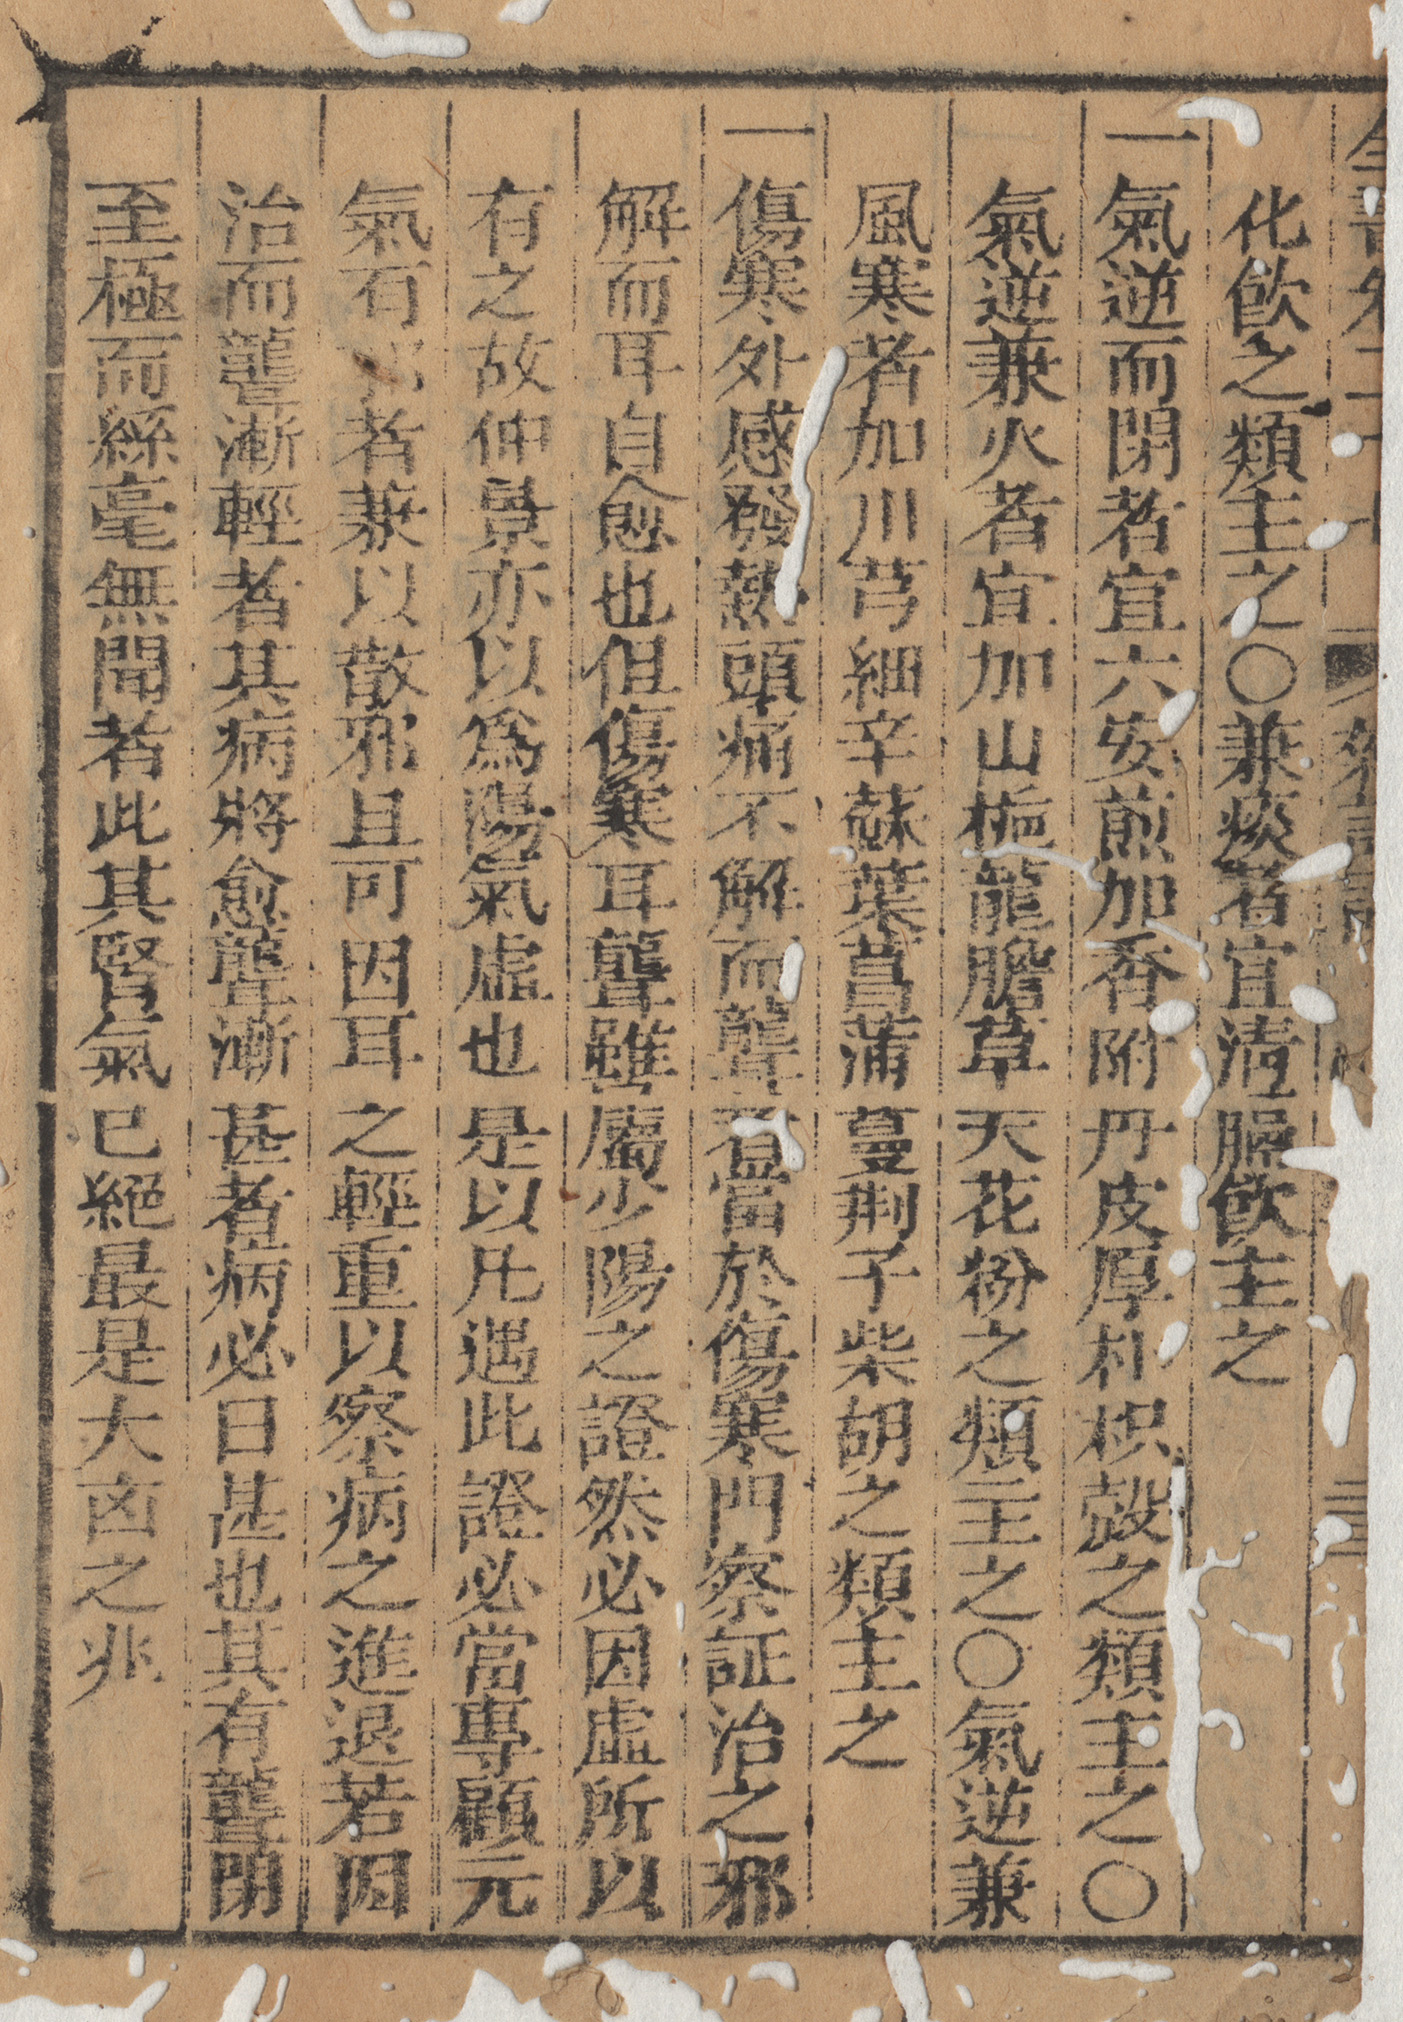 化飲之類主之〇兼痰者宜清膈飲主之
一氣逆而閉者宜六安煎加香附丹皮厚朴枳殼之類主之〇
氣逆兼火者宜加山梔龍膽草天花粉之類主之〇氣逆兼
風寒者加川芎細辛蘇葉菖蒲蔓荆子柴胡之類主之
一傷寒外感發熱頭痛不解而聾者當於傷寒門察証治之邪
解而耳自愈也但傷寒耳聾雖屬少陽之證然必因虛所以
有之故仲景亦以爲陽氣虛也是以凡遇此證必當專顧元
氣有邪者兼以散邪且可因耳之輕重以察病之進退若因
治而聾漸輕者其病將愈聾漸甚者病必日甚也其有聾閉
至極而絲毫無聞者此其腎氣已絕最是大凶之兆